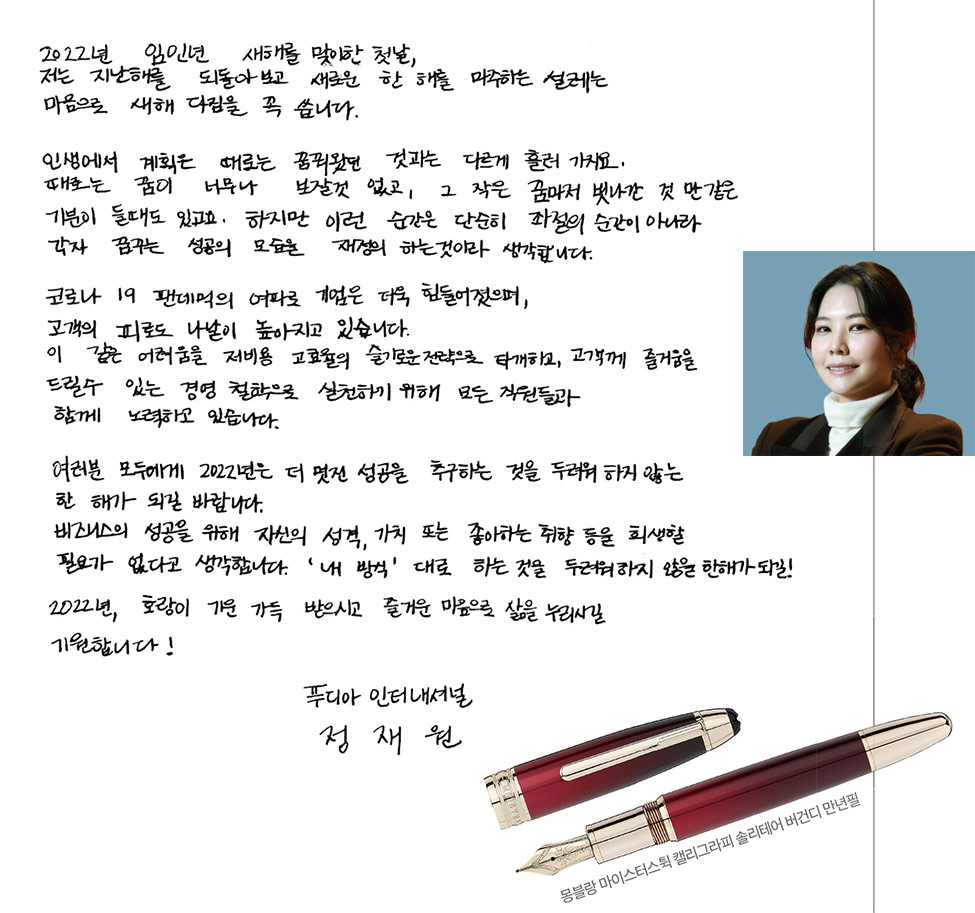 2022년 임인년 새해를 맞이한 첫날,
저는 지난해를 되돌아보고 새로운 한 해를 마주하는 설레는
마음으로 새해 다짐을 꼭 씁니다.
인생에서 계획은 때로는 꿈꿔왔던 것과는 다르게 흘러 가지요.
때로는 꿈이 너무나 보잘것 없고, 그 작은 꿈마저 빗나간 것 만 같은
기분이 들때도 있고요. 하지만 이런 순간은 단순히 좌절의 순간이 아니라
각자 꿈꾸는 성공의 모습을 재정의 하는것이라 생각합니다.
코로나 19 팬데믹의 여파로 기업은 더욱 힘들어졌으며,
고객의 피로도 나날이 높아지고 있습니다.
이 같은 어려움을 저비용 고효율의 슬기로운 전략으로 타개하고, 고객께 즐거움을
드릴수 있는 경영 철학으로 실천하기 위해 모든 직원들과
함께 노력하고 있습니다.
여러분 모두에게 2022년은 더 멋진 성공을 추구하는 것을 두려워 하지 않는
한 해가 되길 바랍니다.
비즈니스의 성공을 위해 자신의 성격, 가치 또는 좋아하는 취향 등을 희생할
필요가 없다고 생각합니다. '내 방식' 대로 하는 것을 두려워하지 않을 한해가 되길!
2022년, 호랑이 기운 가득 받으시고 즐거운 마음으로 삶을 누리시길
기원합니다!
푸디아 인터내셔널
정 재 원
몽블랑 마이스터스튁 캘리그라피 솔리테어 버건디 만년필